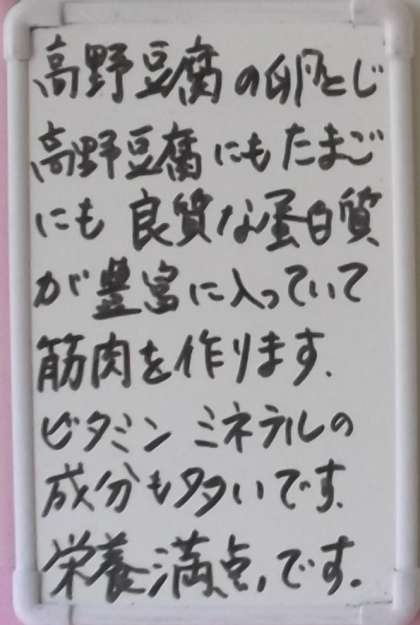 高野豆腐の卵とじ
高野豆腐にもたまご
にも良質な蛋白質
が豊富に入っていて
筋肉を作ります.
ビタミン ミネラルの
成分も多いです.
栄養満点,です.